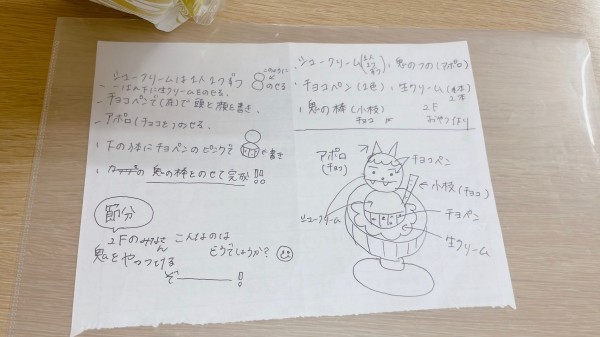 シュークリームは1人2つずつ
このように
のせる
一つ目の下に生クリームをのせる。
チョコペンで(茶)で頭と顔を書き、
アポロ(チョコを)のせる。
下の体にチョコペンのピンクで
を書き
鬼の棒をのせて完成!!
節分
2Fのみなさん こんなのは
どうでしょうか?
鬼をやっつける
ぞー!!
シュークリーム(1人2つずつ)、鬼のつの(アポロ)
、チョコペン(2色)、生クリーム
2本
、鬼の棒(小枝)
チョコ
2F
おやつ作り
アポロ
(チョコ)
チョコペン
小枝(チョコ)
シュークリーム
チョペン
生クリーム